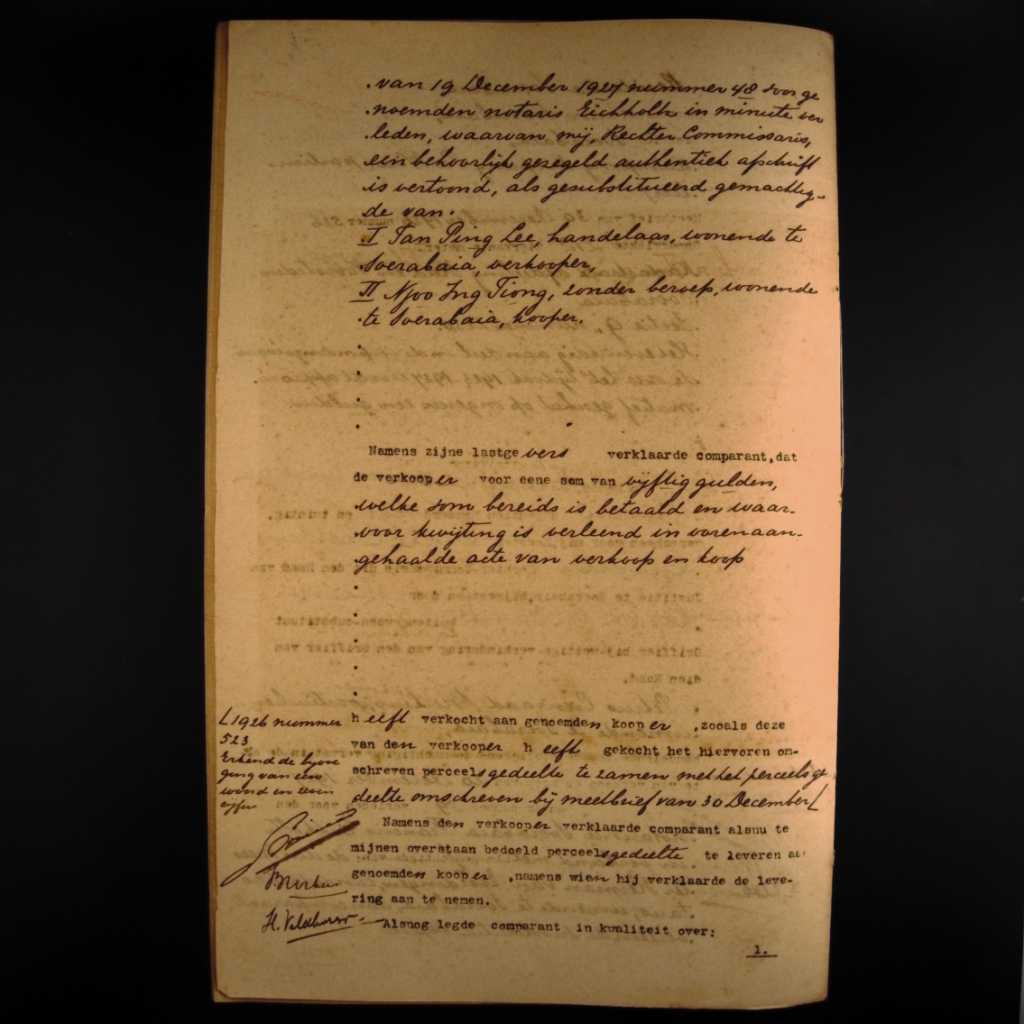 van 19 December 1927 nummer 48 voor ge
noemden notaris Eichholtz in minute ver
leden, waarvan mij, Rechter Commissaris,
een behoorlijk gezegeld authentiek afschrift
is vertoond, als gesubstitueerd gemachtig-
de van.
I Tan Ping Lee, handelaar, wonende te
Soerabaia, verkooper,
II Njoo Ing Tiong, zonder beroep, wonende
te Soerabaia, kooper.
Namens zijne lastgevers verklaarde comparant, dat
de verkooper voor eene som van vijftig gulden,
welke som bereids is betaald en waar-
voor kwijting is verleend in vorenaan-
gehaalde acte van verkoop en koop
heeft verkocht aan genoemden kooper, zooals deze
van den verkooper heeft gekocht het hiervoren om-
schreven perceelsgedeelte te zamen met het perceelsge
deelte omschreven bij meetbrief van 30 December [
[1926 nummer
523
Erkend de bijvoe
ging van een
woord en een
cijfer
Namens den verkooper verklaarde comparant alsnu te
mijnen overstaan bedoeld perceelsgedeelte te leveren aan
genoemden kooper, namens wien hij verklaarde de leve-
ring aan te nemen.
H. Veldhorst
Alsnog legde comparant in kwaliteit over:
1.